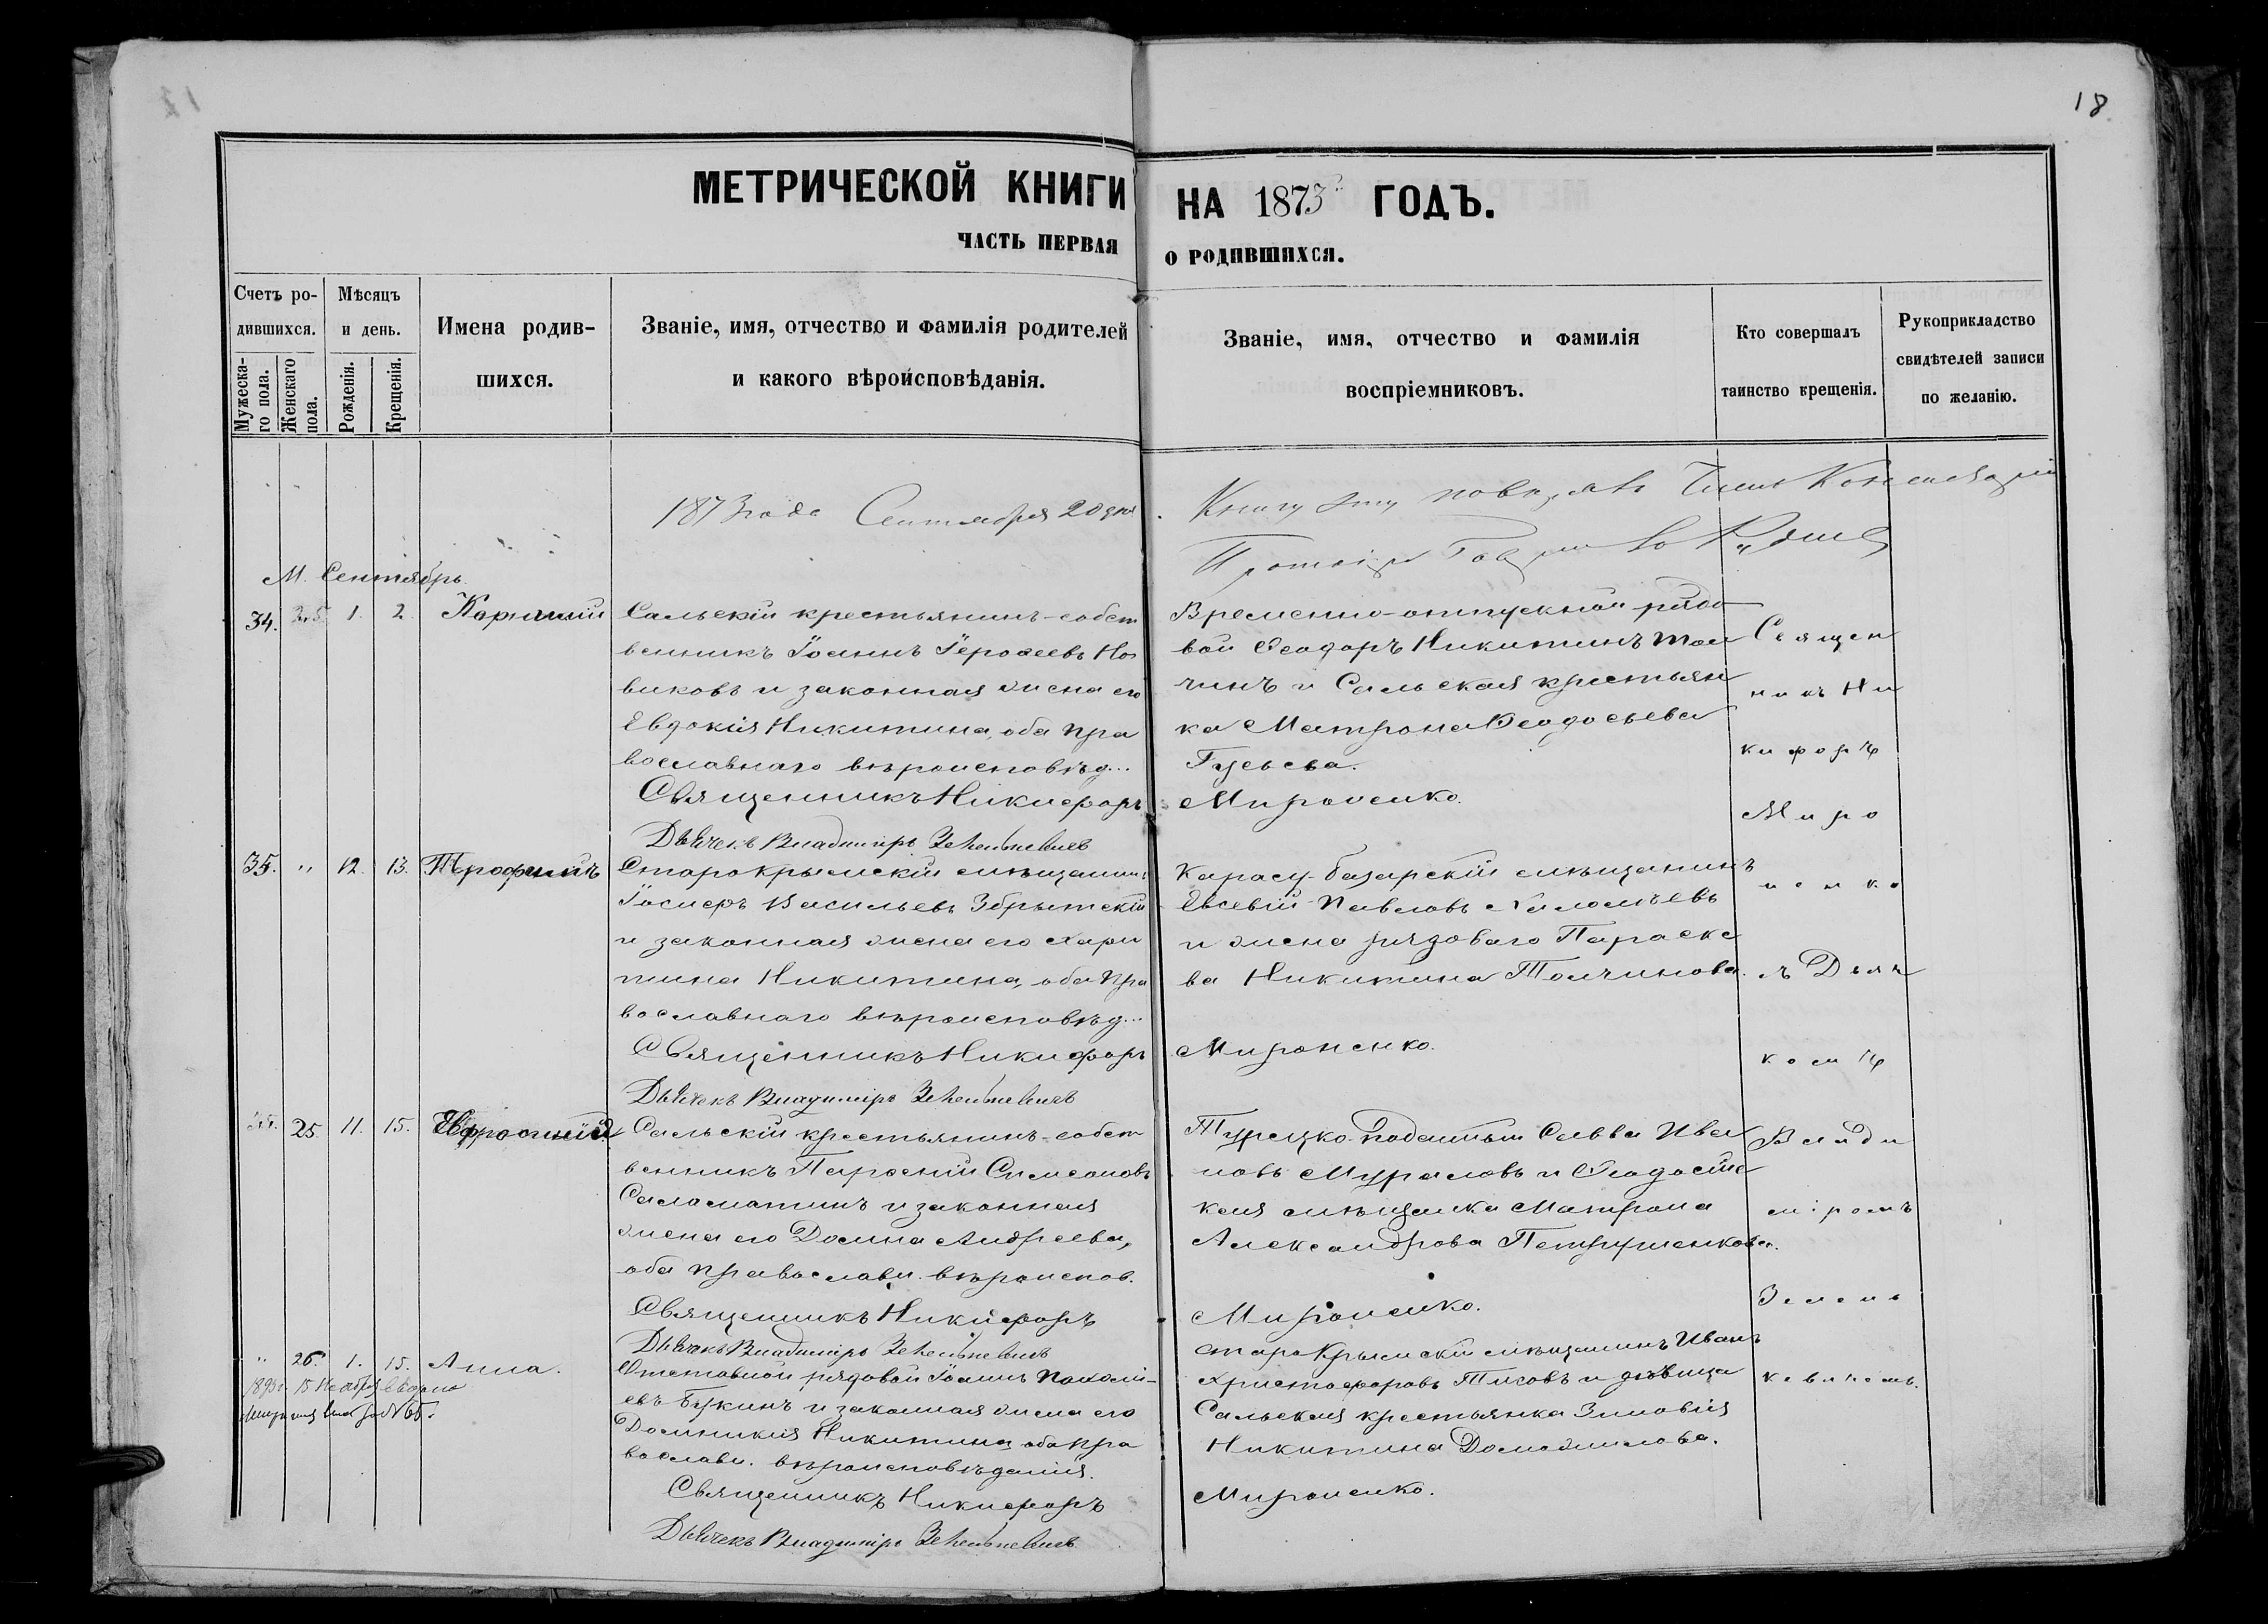 18
МЕТРИЧЕСКОЙ КНИГИ НА 1873 ГОДЪ.
ЧАСТЬ ПЕРВАЯ О РОДИВШИХСЯ.
Счетъ родившихся.
Мужескаго пола.
Женскаго пола.
Мѣсяцъ и день.
Рожденія.
Крещенія.
Имена родив-
шихся.
Званіе, имя, отчество и фамилія родителей
и какого вѣроисповѣданія.
Званіе, имя, отчество и фамилія
воспріемниковъ.
Кто совершалъ
таинство крещенія.
Рукоприкладство
свидѣтелей записи
по желанію.
1873 года Сентября 20 дня
Книгу эту повѣрялъ Членъ Консисторіи
Протоіерей
М. Сентябрь.
34. 1. 2. Корнилій
Сальскій крестьянинъ-собст
венникъ Іоаннъ Іероѳеевъ Но
виковъ и законная жена его
Евдокія Никитина, оба пра
вославнаго вѣроисповѣд...
Священникъ Никифоръ
Дьячекъ Владиміръ
Временно-отпускной рядо
вой Ѳеодоръ Никитинъ Тол
чинъ и Сальская крестьян
ка Матрона Ѳеодосьева
Гусева.
Мироненко.
35. " 12. 13. Трофимъ
Старокрымскій мѣщанинъ
Іосифъ Васильевъ Збрытскій
и законная жена его Хари
тина Никитина, оба пра
вославнаго вѣроисповѣд...
Священникъ Никифоръ
Дьячекъ Владиміръ
Карасу-базарскій мѣщанинъ
Евсевій Павловъ
и жена рядоваго Параске
ва Никитина Толчинова.
Мироненко.
25. 11. 15. Евфросинія
Сальскій крестьянинъ-собст
венникъ Парѳеній Симеоновъ
Саламатинъ и законная
жена его Домна Андреева,
оба православн. вѣроиспов.
Священникъ Никифоръ
Дьячекъ Владиміръ
Турецко-подданный Савва Ива
новъ Мураловъ и Ѳеодосій
ская мѣщанка Матрона
Александрова Петрушенкова.
Мироненко.
" 26. 1. 15. Анна.
Отставной рядовой Іоаннъ
евъ Букинъ и законная жена его
Домникія Никитина, оба пра
вославн. вѣроисповѣданія.
Священникъ Никифоръ
Дьячекъ Владиміръ
Старокрымскій мѣщанинъ Иванъ
Христофоровъ Титовъ и дѣвица
Сальская крестьянка Зиновія
Никитина Доможилова.
Мироненко.
Священ
никъ Ни
кифоръ
Миро
ненко
съ Дьяч
комъ
Влади
міромъ